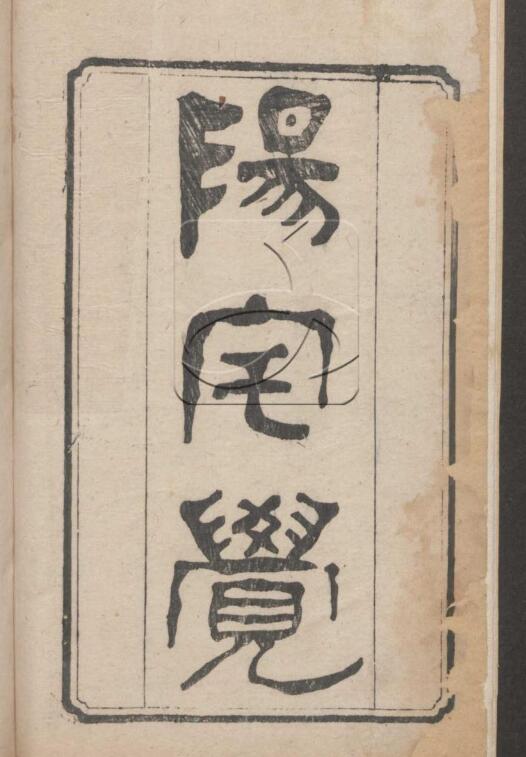 陽宅覺